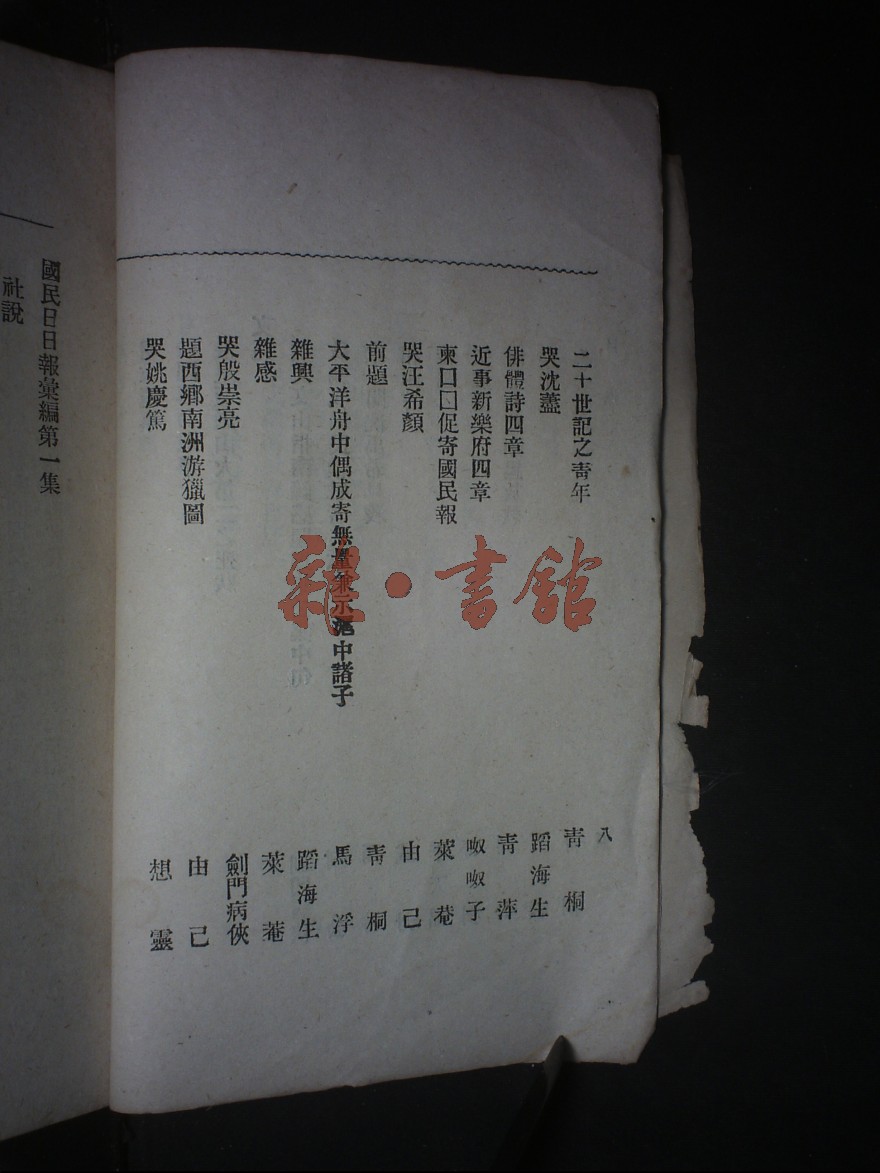 八
二十世記之靑年 靑桐
哭沈藎 蹈海生
俳體詩四章 靑萍
近事新樂府四章 呶呶子
柬口口促寄國民報 萊菴
哭汪希顏 由己
前題 靑桐
大平洋舟中偶成寄無量兼示滬中諸子 馬浮
雜興 蹈海生
雜感 萊菴
哭殷崇亮 劍門病俠
題西鄉南洲游獵圖 由己
哭姚慶篤 想靈
國民日日報彙編第一集
社說
雜·書館